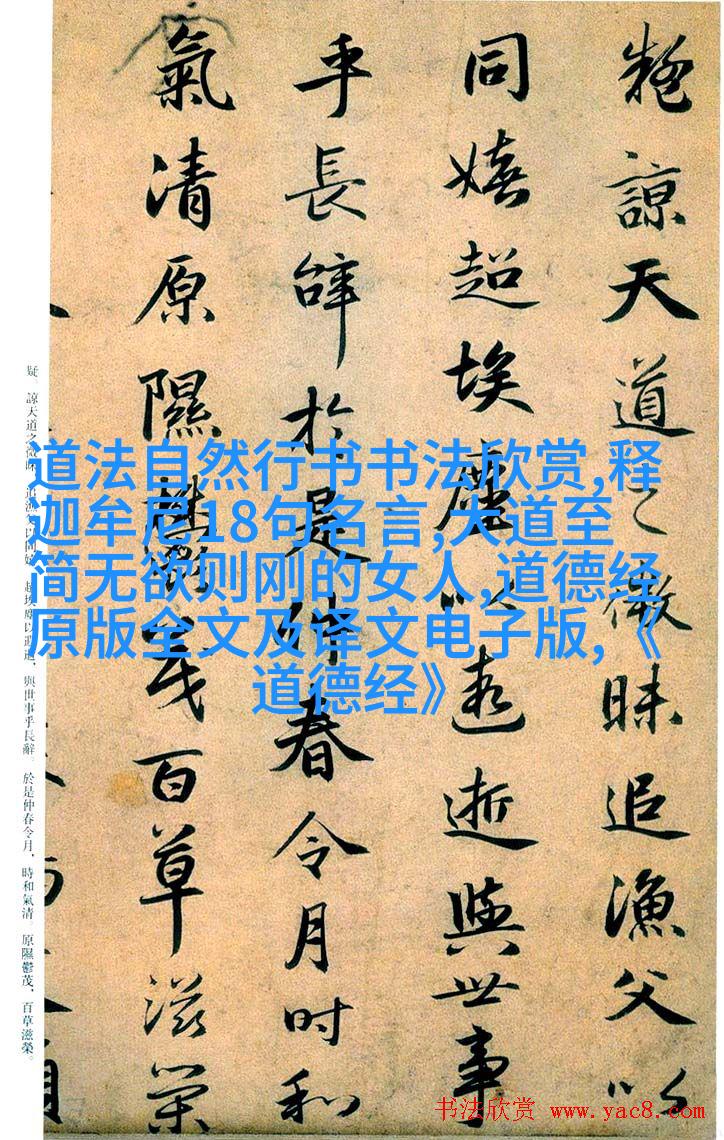 疑諒天道之微昧追漁父以
同嬉超埃塵以遐逝與世事
乎長辭於是仲春令月時和
氣清原隰鬱茂百草滋榮
疑。諒天道之微昧，追漁父以同嬉，超埃塵以遐逝，與世事乎長辭。於是仲春令月，時和氣清。原隰鬱茂，百草滋榮。
道法自然行书书法欣赏,释
迦牟尼18句名言,大道至
简无欲则刚的女人,道德经
原版全文及译文电子版,《
道德经》
书法欣赏 www.yac8.com